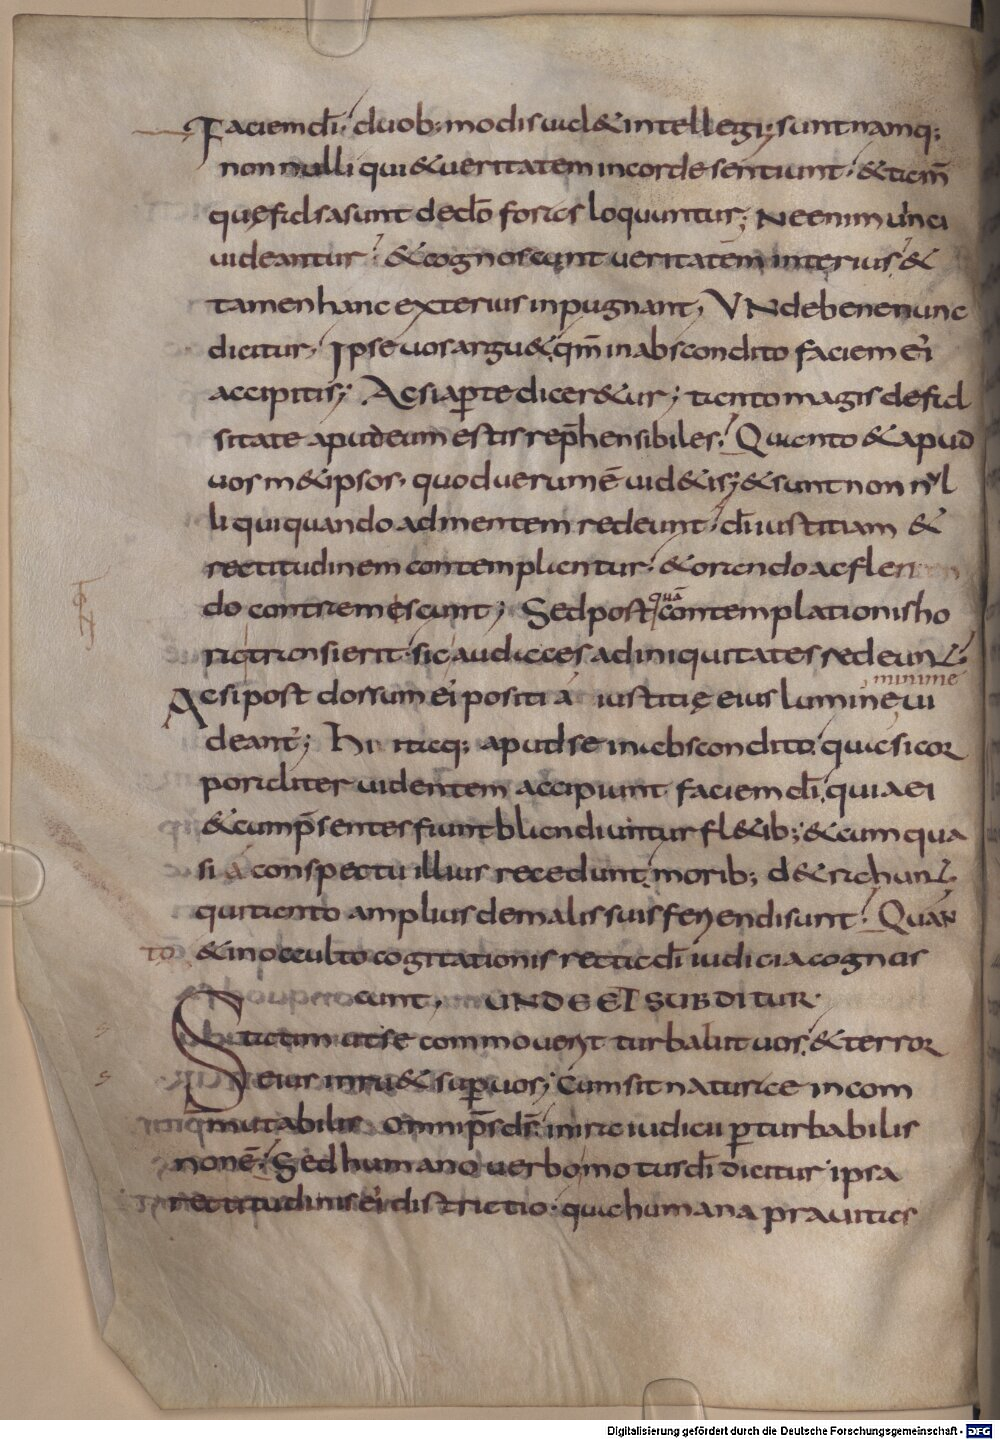 Faciem dı̅; duob; modis uid& intellegi; sunt namq;
non nulli qui & ueritatem in corde sentiunt; & tam̅
quę falsa sunt de do̅ foras loquuntur; Ne enim uinci
uideantur; & cognoscunt ueritatem interius; &
tamen hanc exterius inpugnant; VNde bene nunc
dicitur; Ipse uos argu&, qm̅ in abscondito faciem ei'
accipitis; Ac si aꝑte dicer&ur; tanto magis de fal
sitate apud eum estis rep̅hensibiles; Quanto & apud
uosm&ipsos, quod uerum e̅ uid&is; & sunt non nul
li qui quando ad mentem redeunt; dı̅ iustitiam &
rectitudinem contemplantur; & orando ac flen
do contremescunt; Sed post quā contemplationis ho
ra transierit, sic audaces ad iniquitates redeunt
minime
Ac si post dorsum ei' positi a iustitię eius lumine ui
deant'; Hi itaq; apud se in abscondito, quasi cor
poraliter uidentem accipiunt faciem dı̅, quia ei
& cum p̅sentes fiunt blandiuntur fl&ib; & cum qua
si a conspectu illius recedunt, morib; d&rahunt
qui tanto amplius de malis suis feriendi sunt; Quan
to & in occulto cogitationis recta dı̅ iudicia cognos
cunt; UNDE ET SUBDITUR;
Statim ut se commouerit turbabit uos, & terror
eius inru& suꝑ uos; Cum sit naturae incom
mutabilis omnip̅s ds̅, in ira iudicii ꝑturbabilis
non e̅; Sed humano uerbo motus dı̅ dicitur ipsa
rectitudinis ei' districtio, qua humana prauitas
Digitalisierung gefördert durch die Deutsche Forschungsgemeinschaft - DFG